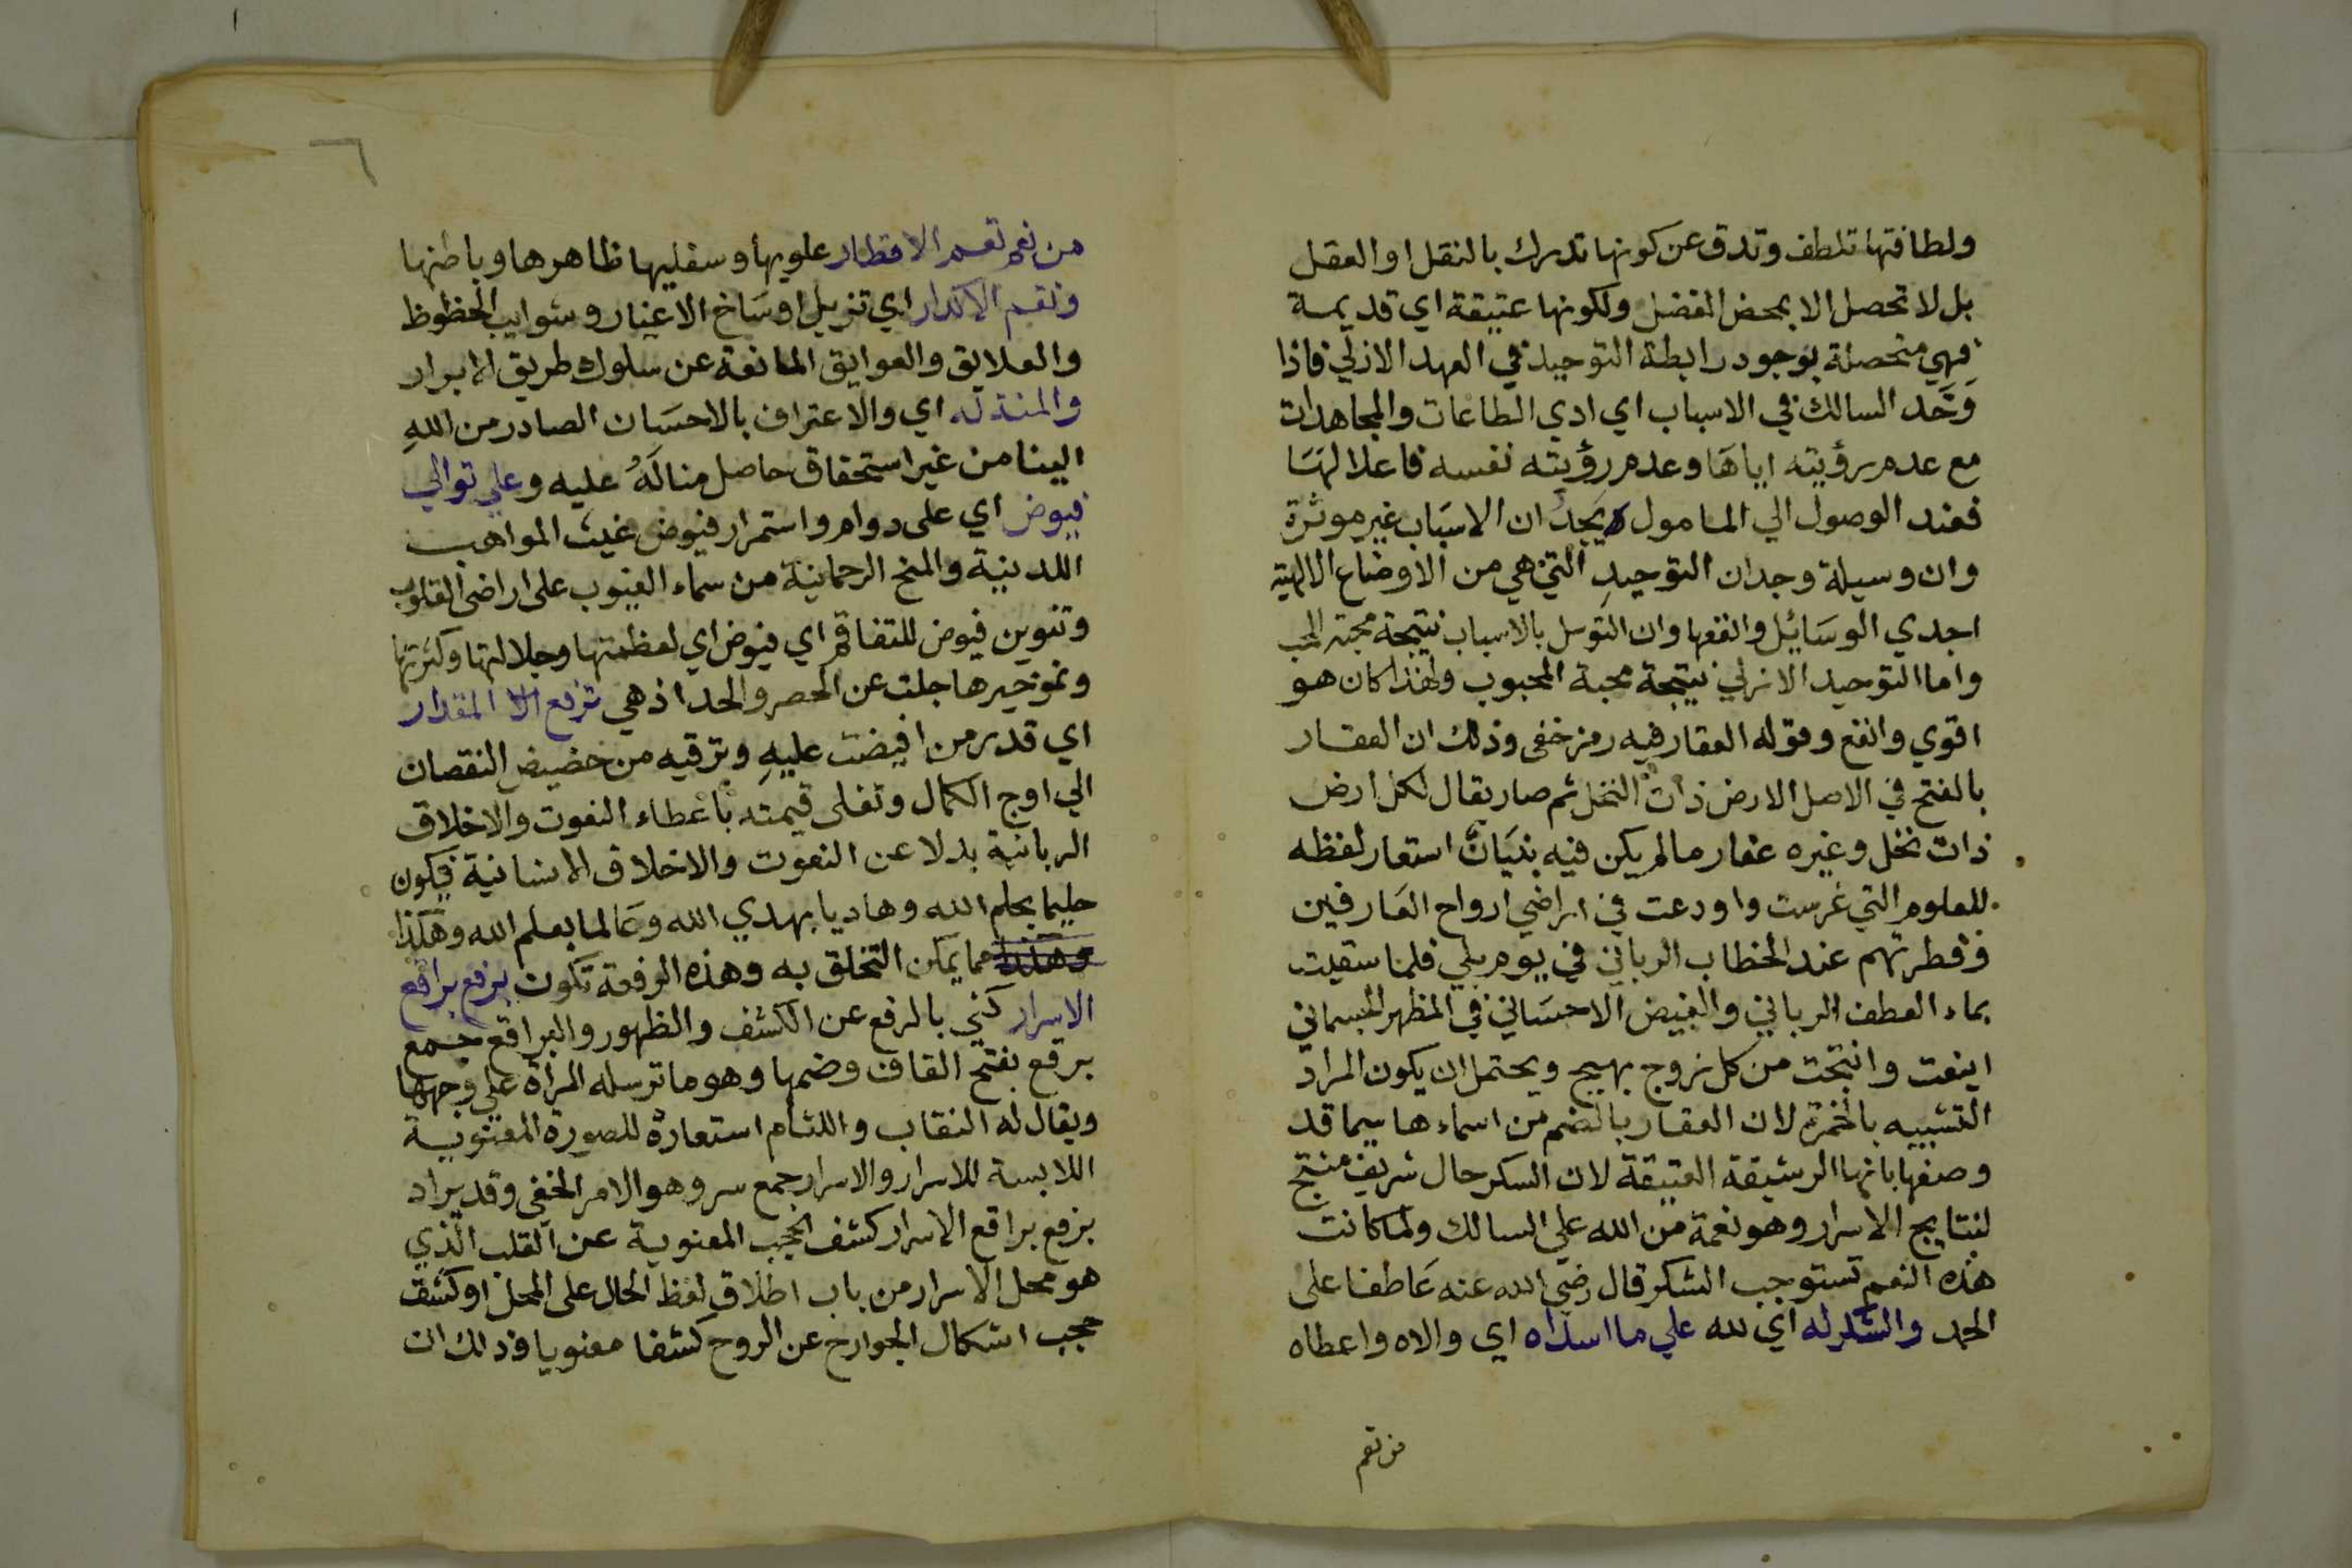 ولطافتها تلطف وتدق عن كونها تدرك بالنقل او العقل
بل لا تحصل الا بمحض الفضل ولكونها عتيقة اي قديمة
فهي متحصلة بوجود رابطة التوحيد في العهد الازلي فاذا
وَحَّد السالك في الاسباب اي ادي الطاعات والمجاهدات
مع عدم رؤيته اياها وعدم رؤيته نفسه فاعلا لها
فعند الوصول الي المامول يجد ان الاسباب غير موثرة
وان وسيلة وجدان التوحيدِ التي هي من الاوضاع الالهية
اجدي الوسائل وانفعها وان التوسل بالاسباب نتيجة محبة المحب
واما التوحيد الازلي نتيجة محبة المحبوب ولهذا كان هو
اقوي وانفع وقوله العقار فيه رمز خفي وذلك ان العقار
بالفتح في الاصل الارض ذات النخل ثم صار يقال لكل ارض
ذات نخل وغيره عقار مالم يكن فيه بنيان استعار لفظه
للعلوم التي غرست واودعت في اراضي ارواح العارفين
وفطرتهم عند الخطاب الرباني في يوم بلي فلما سقيت
بماء العطف الرباني والفيض الاحساني في المظهر الجسماني
اينعت وانتجت من كل زوج بهيج ويحتمل ان يكون المراد
التشبيه بالخمرة لان العقار بالضم من اسماءها سيما قد
وصفها بانها الرشيقة العتيقة لان السكر حال شريف منتج
لنتايج الاسرار وهو نعمة من الله علي السالك ولما كانت
هذه النعم تستوجب الشكر قال رضي الله عنه عاطفا على
الحمد والشكر له اي لله علي ما اسداه اي والاه واعطاه
من نعم
٦
من نعم تعم الاقطار علويها وسفليها ظاهرها وباطنها
وتقم الاكدار اي تزيل اوساخ الاغيار وشوايب الحظوظ
والعلايق والعوايق المانعة عن سلوك طريق الابرار
والمنة له اي والاعتراف بالاحسان الصادر من اللهِ
الينا من غير استحقاق حاصل منا لَهُ عليه وعلي توالي
فيوض اي على دوام واستمرار فيوض غيث المواهب
اللدنية والمنح الرحمانية من سماء الغيوب على اراضي القلوب
وتنوين فيوض للتفاقم اي فيوض اي لعظمتها وجلالتها وكثرتها
جلت عن الحصر والحد اذ هي ترفع المقدار
اي قدر من افيضت عليهِ وترقيه من حضيض النقصان
الي اوج الكمال وتغلى قيمته باعطاء النعوت والاخلاق
الربانية بدلا عن النعوت والاخلاق الانسانية فيكون
حليما بحلم الله وهاديا بهدي الله وعالما بعلم الله وهكذا
وهكذا مما يمكن التخلق به وهذه الرفعة تكون برفع براقع
الاسرار كني بالرفع عن الكشف والظهور والبراقع جمع
برقع بفتح القاف وضمها وهو ما ترسله المراة علي وجهها
ويقال له النقاب واللثام استعارة للصورة المعنوية
اللابسة للاسرار والاسرار جمع سر وهو الامر الخفي وقد يراد
برفع براقع الاسرار كشف الحجب المعنوية عن القلب الذي
هو محل الاسرار من باب اطلاقِ لفظ الحال على المحل او كشف
حجب اشكال الجوارح عن الروح كشفا معنويا وذلك ان